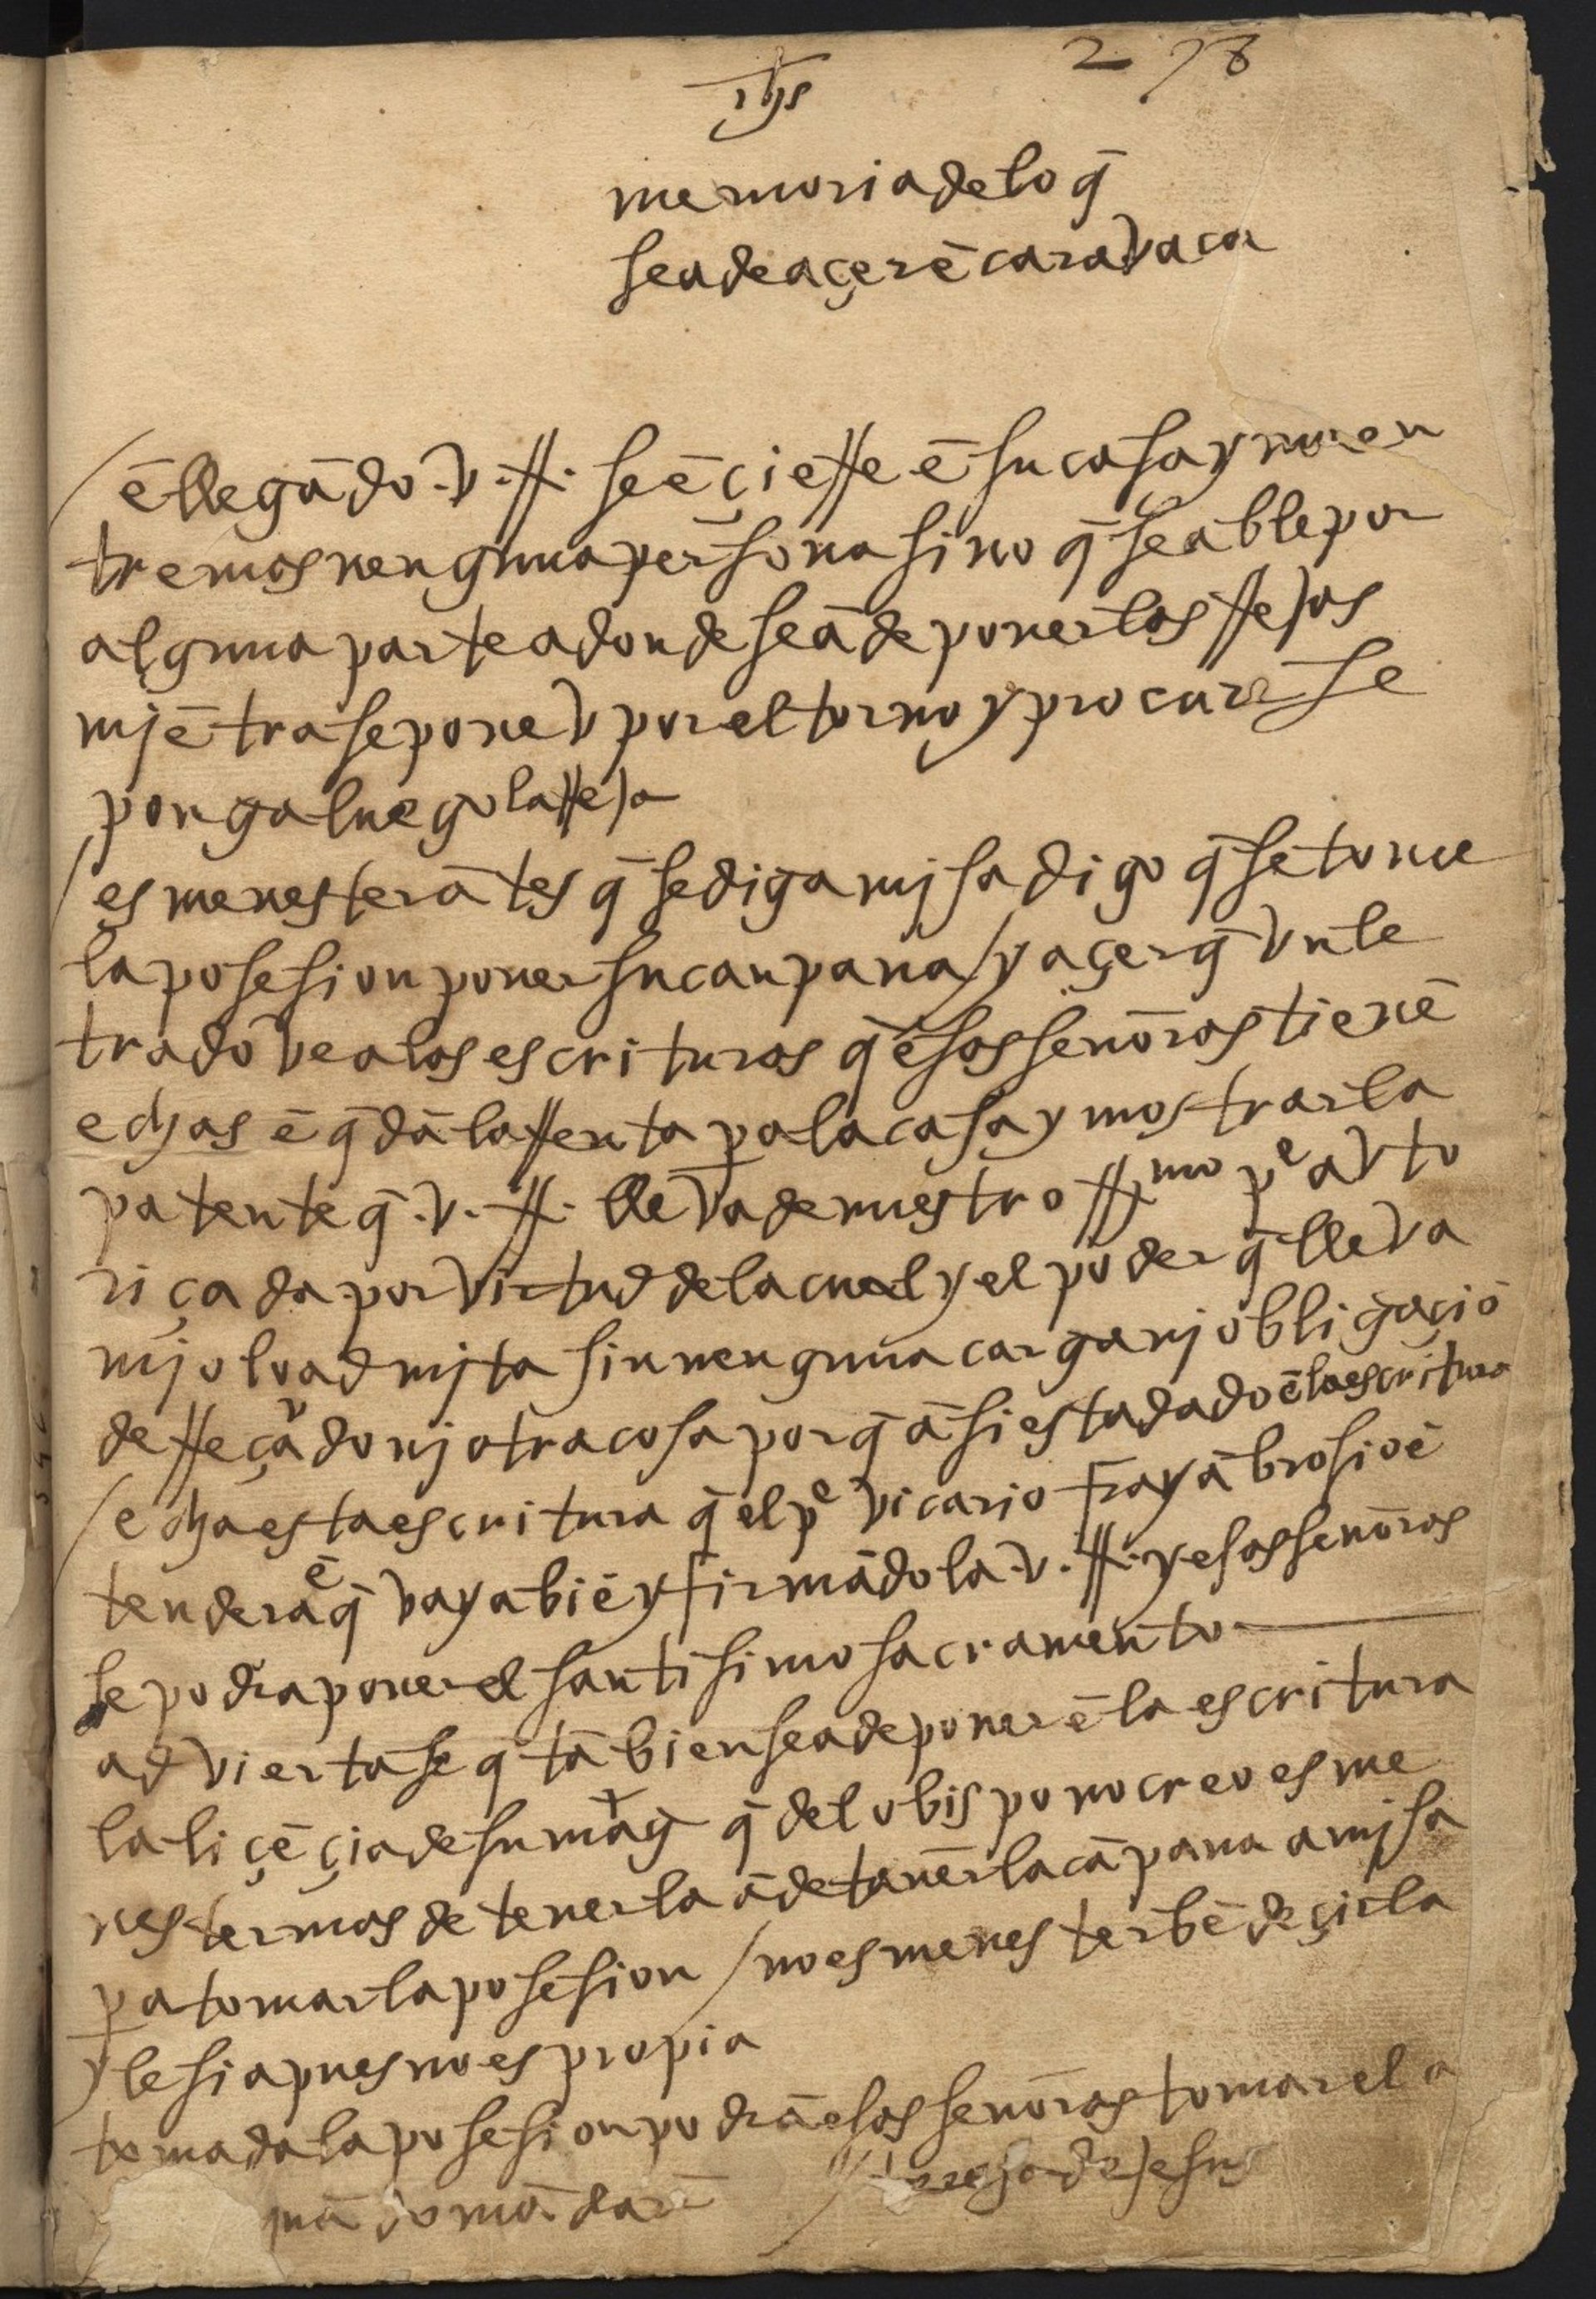 278
jhs
memoria de lo q̄
se a de açer ē caravaca
ē llegādo .v.R. se ēçierre ē su casa y no en
tre mas nenguna persona sino q̄ se able por
alguna parte adonde se ā de poner las rejas
mjētra se pone v por el torno y procurese
ponga luego la reja
es menester ātes q̄ se diga mjsa digo q̄ se tome
la posesion poner su canpana / y açer q̄ vn le
trado vea las escrituras q̄ esas señoras tienē
echas ē q̄ dā la renta pa la casa y mostrar la
patente q̄ .v.R. lleva de nuestro Rmo pe avto
riçada por virtud de la cual y el poder q̄ lleva
mjo lo admjta sin nenguna carga nj obligaçiō
de reçādo nj otra cosa porq̄ āsi esta dado ē la escritura
/ echa esta escritura q̄ el pe vicario fray ābrosio ē
tendera ē q̄ vaya biē y firmādola .v.R. y esas señoras
se podra poner el santisimo sacramento
adviertase q̄ tābien se a de poner ē la escritura
la liçēçia de su magt q̄ del obispo no creo es me
nester mas de tenerla ā de tañer la cāpana a mjsa
pa tomar la posesion / no es menester bēdeçir la
ylesia pues no es propia
tomada la posesion podrā esas señoras tomar el a
teresa de jesus